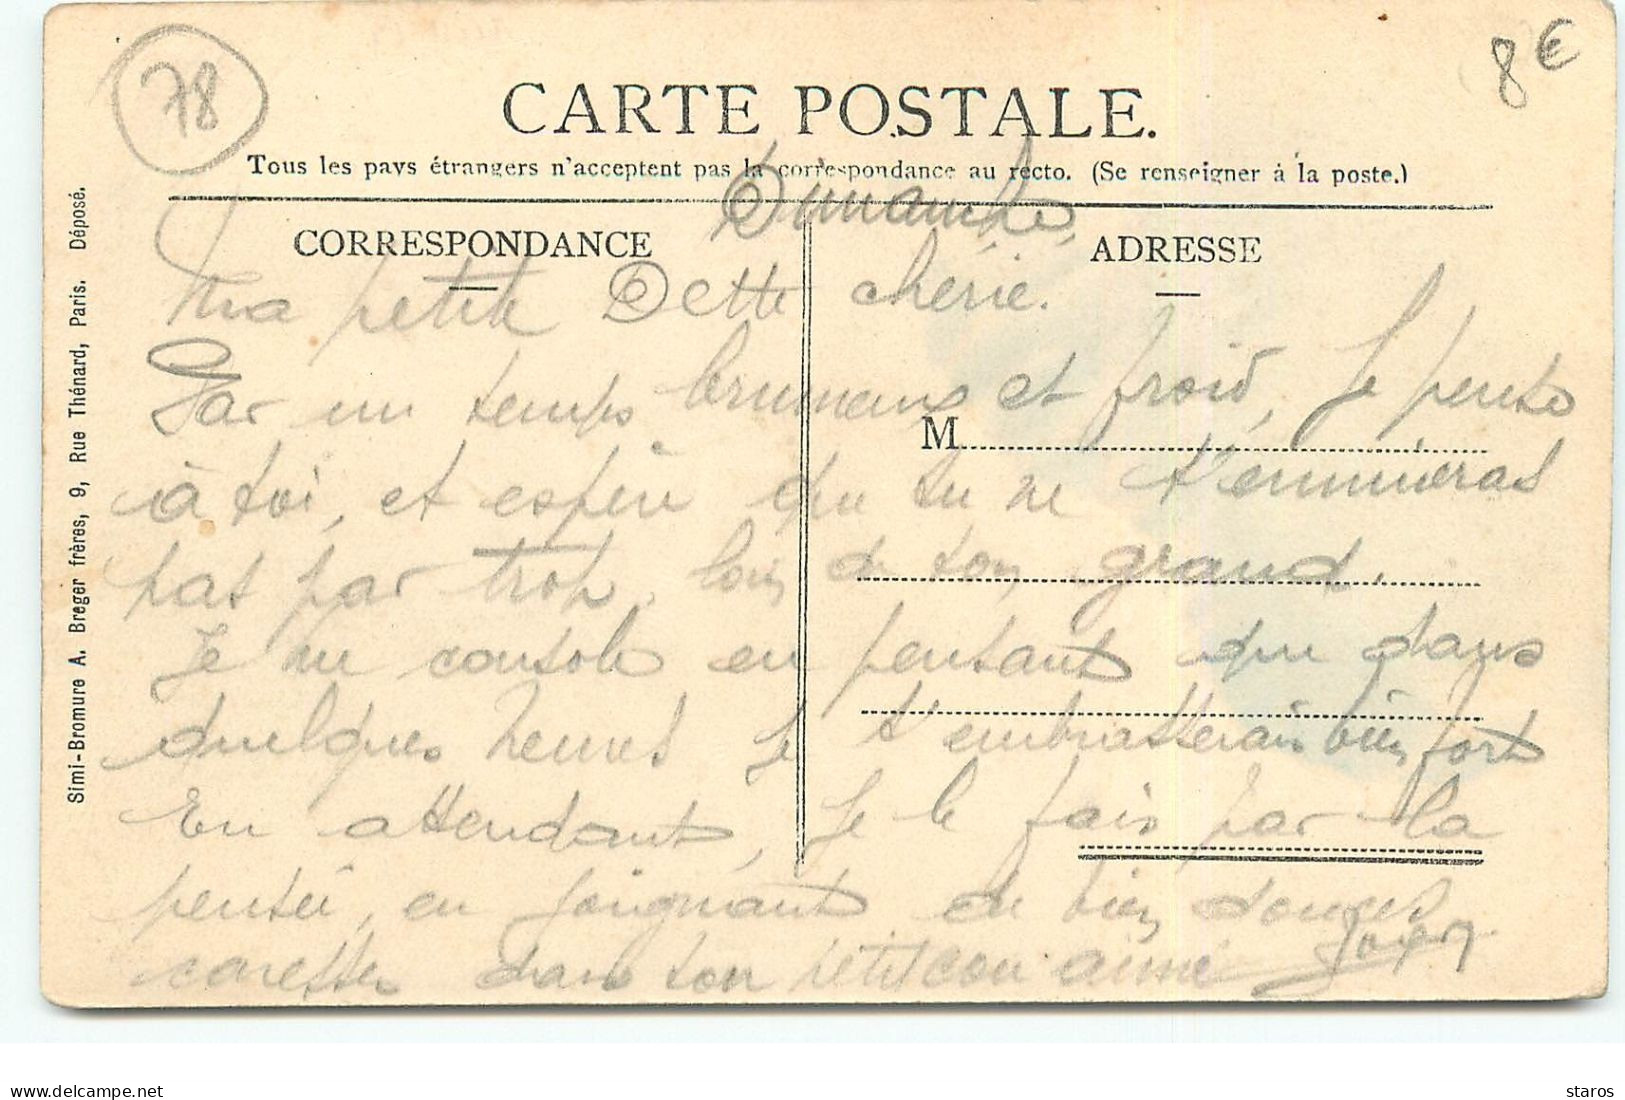 78
8€
CARTE POSTALE.
Tous les pays étrangers n'acceptent pas la correspondance au recto. (Se renseigner à la poste.)
Dimanche,
CORRESPONDANCE
ADRESSE
Ma petite Dette chérie.
Par un temps brumeux et froid, Je pense
M
à toi, et espère que tu ne t'ennuieras
pas par trop, loin de ton grand.
Je me console en pensant que dans
quelques heures je t'embrasserais bien fort
En attendant, je le fais par la
pensée, en joignant de bien douces
caresses dans ton petit cou aimé
Simi-Bromure A. Breger frères, 9, Rue Thénard, Paris. Déposé.
staros
www.delcampe.net